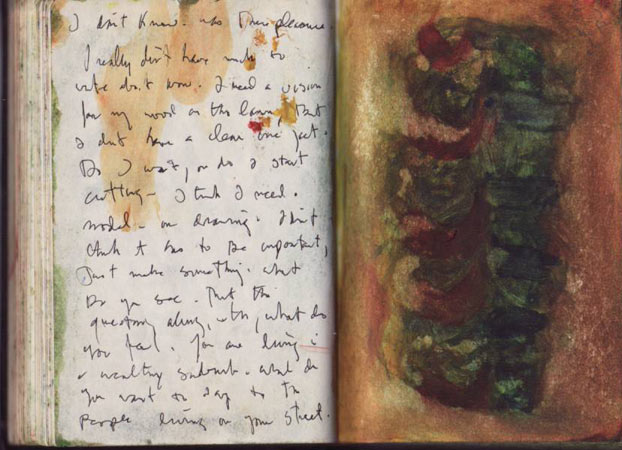 I don't know.
I really don't have much to
write about now. I need a vision
for my wood on the lawn, But
I don't have a clear one yet.
Do I wait, or do I start
cutting - I think I need a
model - or drawing. I don't
think it has to be important,
Just make something. what
Do you see. that the
question along with, what do
you feel. You are living in
a wealthy suburb. what do
you want to say to the
people living on your street.